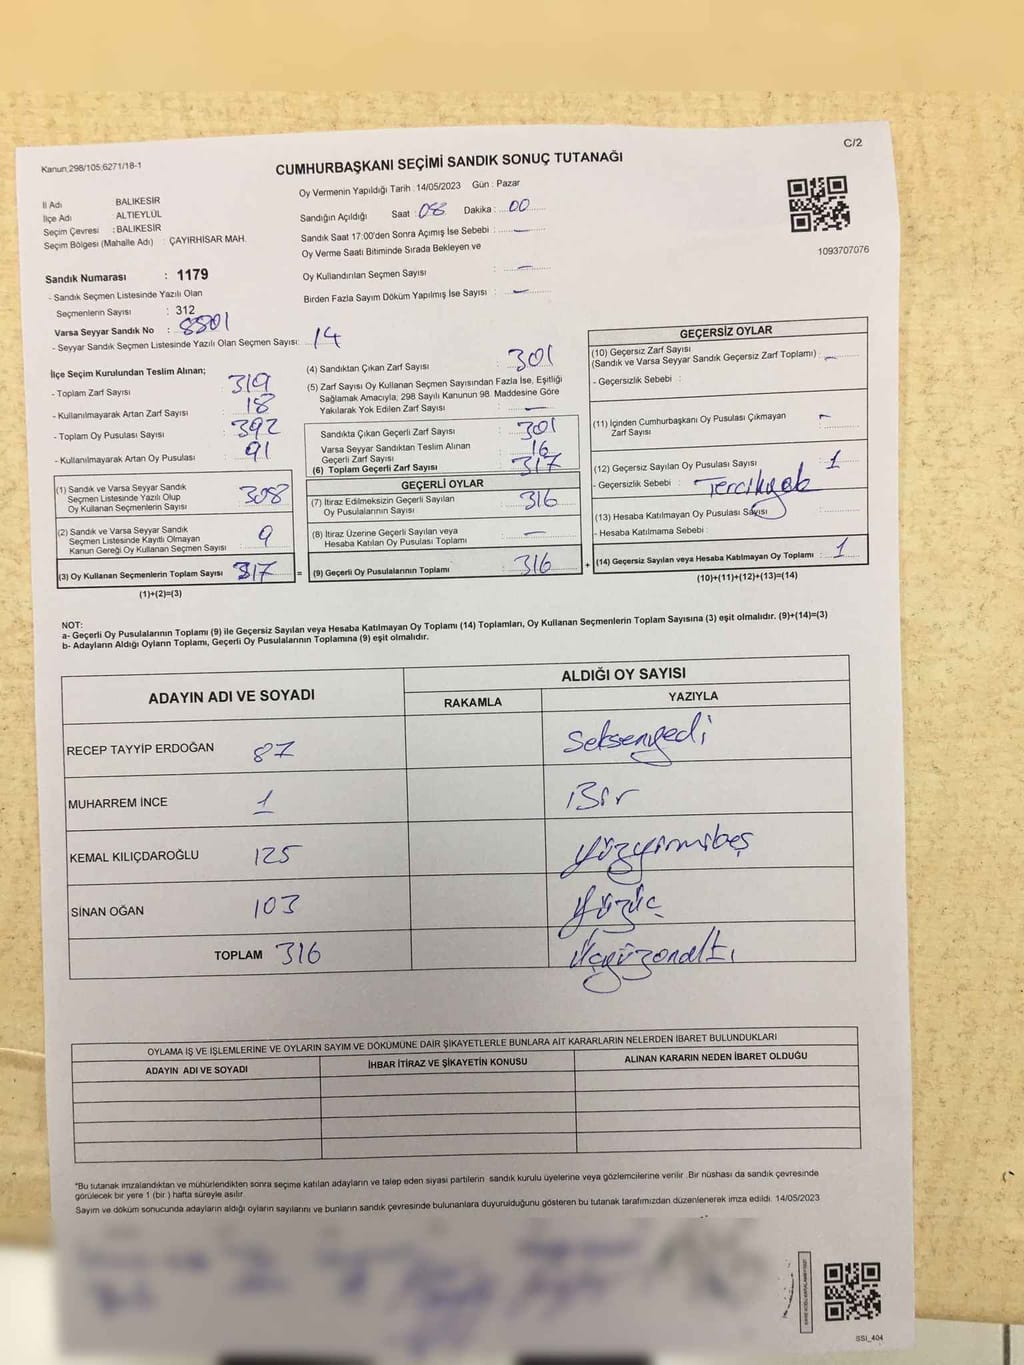 Kanun 298/105;6271/18-1
C/2
CUMHURBAŞKANI SEÇİMİ SANDIK SONUÇ TUTANAĞI
İl Adı BALIKESİR
İlçe Adı ALTIEYLÜL
Seçim Çevresi : BALIKESİR
Seçim Bölgesi (Mahalle Adı) : ÇAYIRHİSAR MAH.
Sandık Numarası : 1179
- Sandık Seçmen Listesinde Yazılı Olan
Seçmenlerin Sayısı : 312
Varsa Seyyar Sandık No : 8801
- Seyyar Sandık Seçmen Listesinde Yazılı Olan Seçmen Sayısı: 14
Oy Vermenin Yapıldığı Tarih : 14/05/2023 Gün : Pazar
Sandığın Açıldığı Saat : 08 Dakika : 00
Sandık Saat 17:00'den Sonra Açımış İse Sebebi : —
Oy Verme Saati Bitiminde Sırada Bekleyen ve
Oy Kullandırılan Seçmen Sayısı : —
Birden Fazla Sayım Döküm Yapılmış İse Sayısı : —
1093707076
İlçe Seçim Kurulundan Teslim Alınan;
- Toplam Zarf Sayısı : 319
- Kullanılmayarak Artan Zarf Sayısı : 18
- Toplam Oy Pusulası Sayısı : 392
- Kullanılmayarak Artan Oy Pusulası : 91
(1) Sandık ve Varsa Seyyar Sandık
Seçmen Listesinde Yazılı Olup
Oy Kullanan Seçmenlerin Sayısı : 308
(2) Sandık ve Varsa Seyyar Sandık
Seçmen Listesinde Kayıtlı Olmayan
Kanun Gereği Oy Kullanan Seçmen Sayısı : 9
(3) Oy Kullanan Seçmenlerin Toplam Sayısı 317 =
(1)+(2)=(3)
(4) Sandıktan Çıkan Zarf Sayısı : 301
(5) Zarf Sayısı Oy Kullanan Seçmen Sayısından Fazla İse, Eşitliği
Sağlamak Amacıyla; 298 Sayılı Kanunun 98. Maddesine Göre
Yakılarak Yok Edilen Zarf Sayısı : —
Sandıkta Çıkan Geçerli Zarf Sayısı : 301
Varsa Seyyar Sandıktan Teslim Alınan
Geçerli Zarf Sayısı : 16
(6) Toplam Geçerli Zarf Sayısı : 317
GEÇERLİ OYLAR
(7) İtiraz Edilmeksizin Geçerli Sayılan
Oy Pusulalarının Sayısı : 316
(8) İtiraz Üzerine Geçerli Sayılan veya
Hesaba Katılan Oy Pusulası Toplamı : —
(9) Geçerli Oy Pusulalarının Toplamı : 316 +
GEÇERSİZ OYLAR
(10) Geçersiz Zarf Sayısı
(Sandık ve Varsa Seyyar Sandık Geçersiz Zarf Toplamı) : —
- Geçersizlik Sebebi :
(11) İçinden Cumhurbaşkanı Oy Pusulası Çıkmayan
Zarf Sayısı : —
(12) Geçersiz Sayılan Oy Pusulası Sayısı : 1
- Geçersizlik Sebebi :
(13) Hesaba Katılmayan Oy Pusulası Sayısı :
- Hesaba Katılmama Sebebi :
(14) Geçersiz Sayılan veya Hesaba Katılmayan Oy Toplamı : 1
(10)+(11)+(12)+(13)=(14)
NOT:
a- Geçerli Oy Pusulalarının Toplamı (9) ile Geçersiz Sayılan veya Hesaba Katılmayan Oy Toplamı (14) Toplamları, Oy Kullanan Seçmenlerin Toplam Sayısına (3) eşit olmalıdır. (9)+(14)=(3)
b- Adayların Aldığı Oyların Toplamı, Geçerli Oy Pusulalarının Toplamına (9) eşit olmalıdır.
ADAYIN ADI VE SOYADI ALDIĞI OY SAYISI
RAKAMLA YAZIYLA
RECEP TAYYİP ERDOĞAN 87 Seksenyedi
MUHARREM İNCE 1 Bir
KEMAL KILIÇDAROĞLU 125 Yüzyirmibeş
SİNAN OĞAN 103 Yüzüç
TOPLAM 316 Üçyüzonaltı
OYLAMA İŞ VE İŞLEMLERİNE VE OYLARIN SAYIM VE DÖKÜMÜNE DAİR ŞİKAYETLERLE BUNLARA AİT KARARLARIN NELERDEN İBARET BULUNDUKLARI
ADAYIN ADI VE SOYADI İHBAR İTİRAZ VE ŞİKAYETİN KONUSU ALINAN KARARIN NEDEN İBARET OLDUĞU
*Bu tutanak imzalandıktan ve mühürlendikten sonra seçime katılan adayların ve talep eden siyasi partilerin sandık kurulu üyelerine veya gözlemcilerine verilir. Bir nüshası da sandık çevresinde
görülecek bir yere 1 (bir) hafta süreyle asılır.
Sayım ve döküm sonucunda adayların aldığı oyların sayılarını ve bunların sandık çevresinde bulunanlara duyurulduğunu gösteren bu tutanak tarafımızdan düzenlenerek imza edildi. 14/05/2023
SSI_404